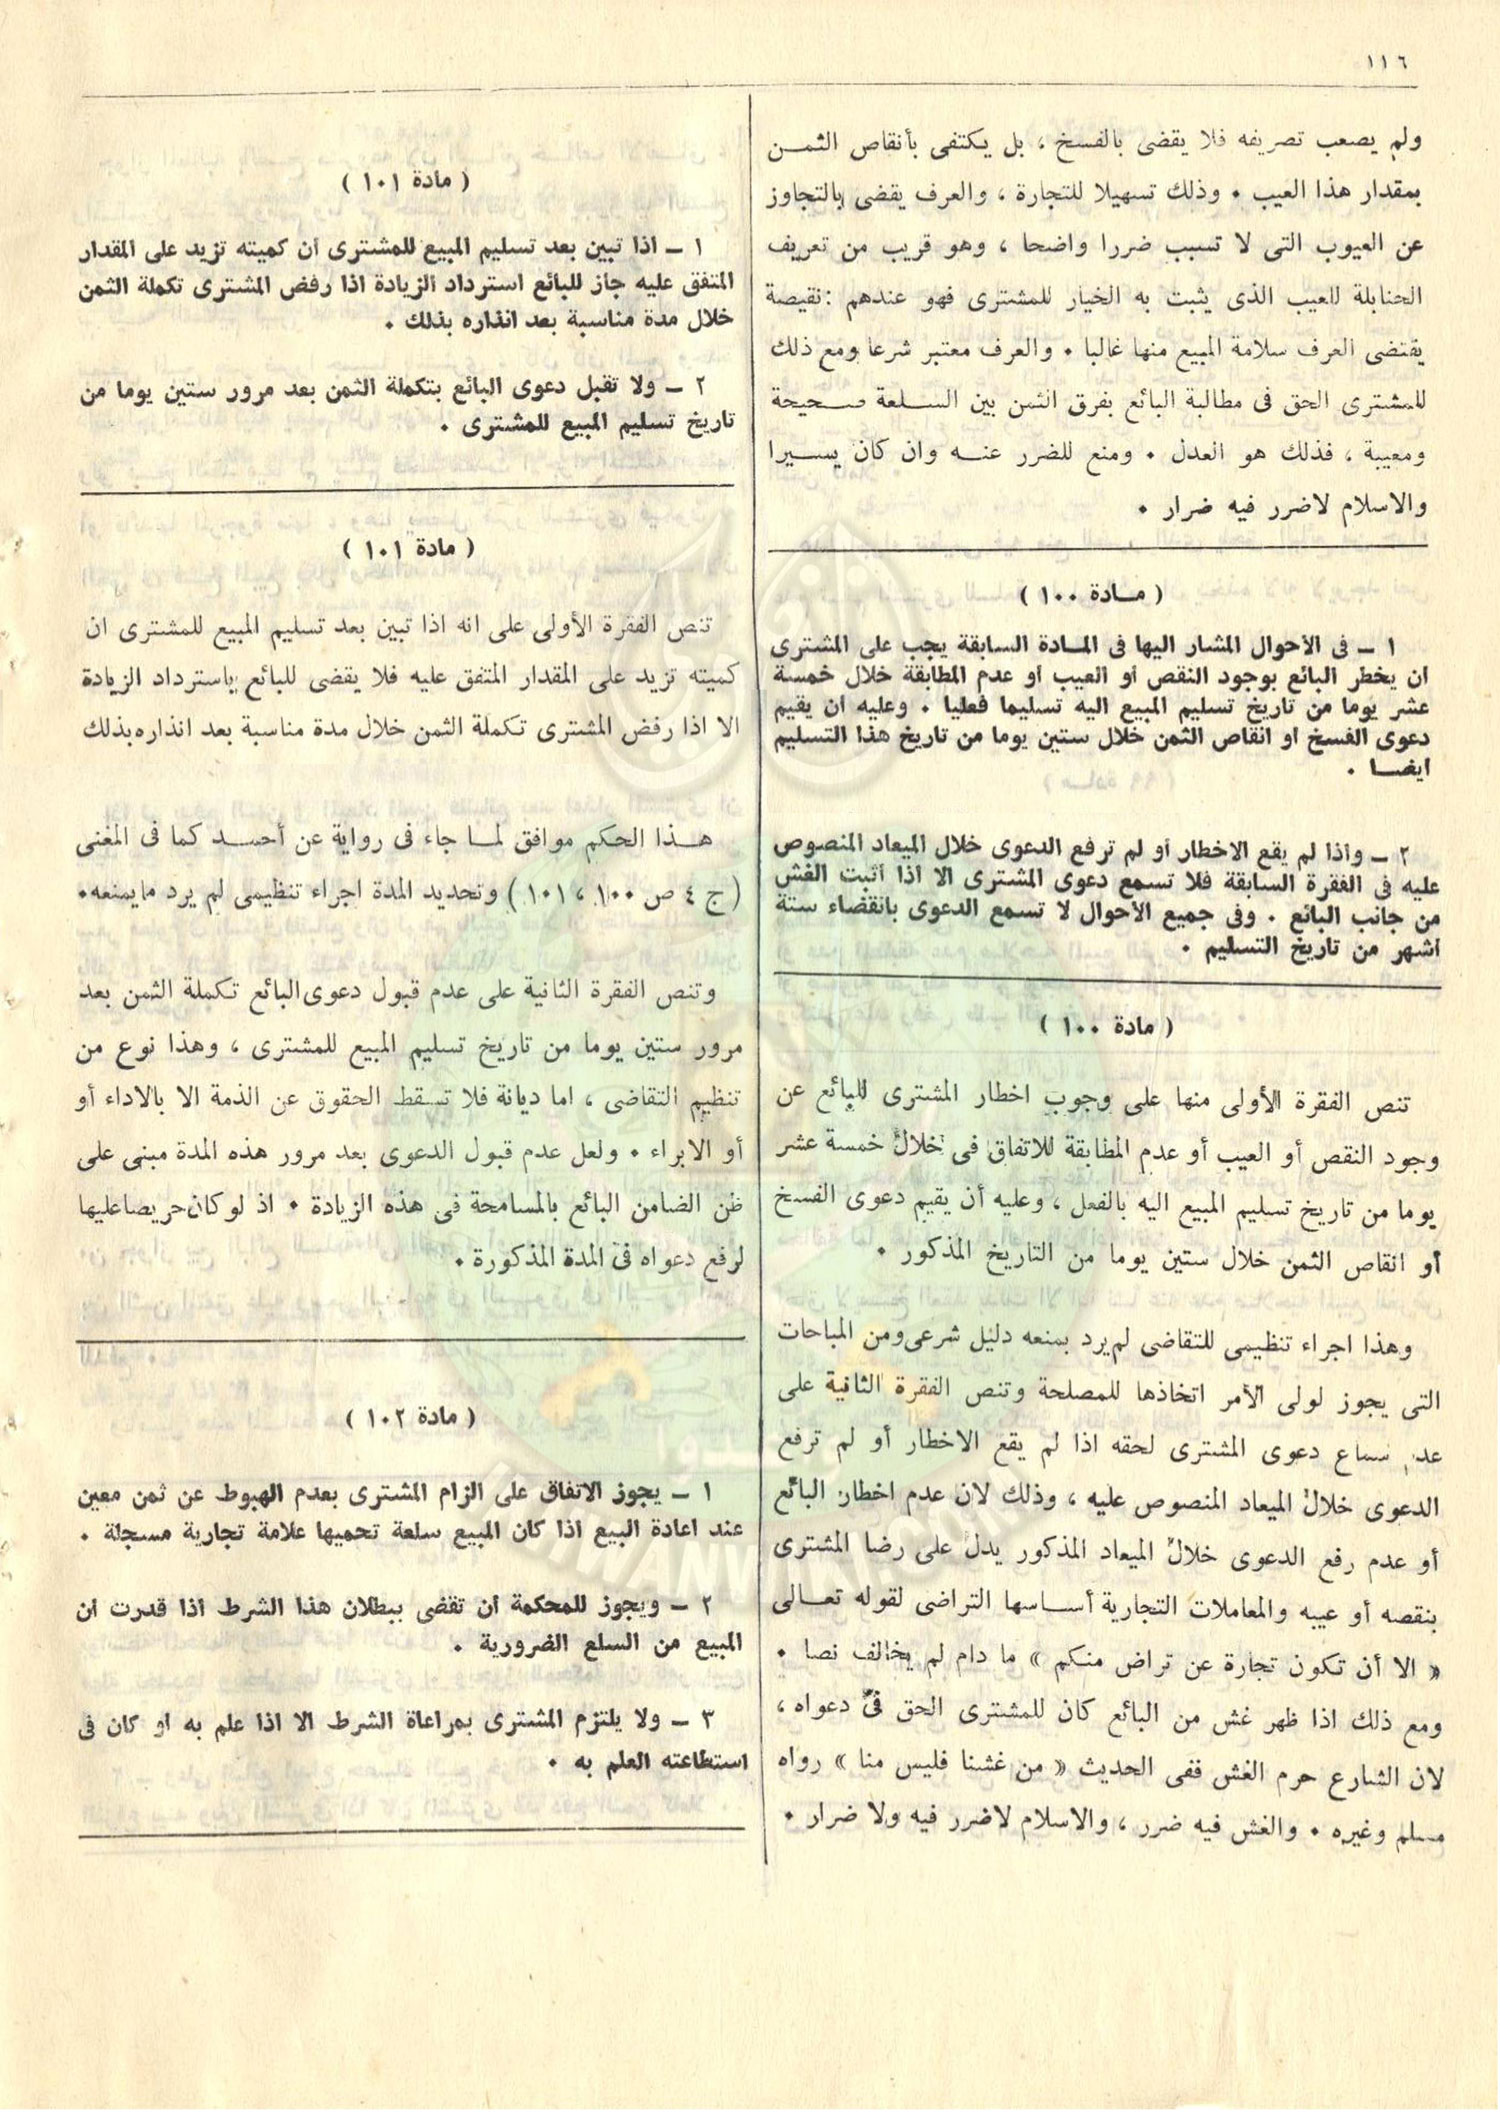 ١١٦
ولم يصعب تصريفه فلا يقضى بالفسخ ، بل يكتفى بأنقاص الثمـن
بمقدار هذا العيب • وذلك تسهيلا للتجارة ، والعرف يقضى بالتجاوز
عن العيوب التى لا تسبب ضررا واضحا ، وهو قريب من تعريف
الحنابلة للعيب الذى يثبت به الخيار للمشترى فهو عندهم : نقيصة
يقتضى العرف سلامة المبيع منها غالبا • والعرف معتبر شرعا ومع ذلك
للمشترى الحق فى مطالبة البائع بفرق الثمن بين السلعة صحيحة
ومعيبة ، فذلك هو العدل • ومنع للضرر عنـه وان كان يسيرا
والاسلام لاضرر فيه ضرار •
( مـادة ١٠٠ )
١ ـ فى الأحوال المشار اليها فى المـادة السابقة يجب على المشترى
ان يخطر البائع بوجود النقص أو العيب أو عدم المطابقة خلال خمسة
عشر يوما من تاريخ تسليم المبيع اليه تسليما فعليا • وعليه ان يقيم
دعوى الفسخ او انقاص الثمن خلال ستين يوما من تاريخ هذا التسليم
ايضـا •
٢ ـ واذا لم يقع الاخطار أو لم ترفع الدعوى خلال الميعاد المنصوص
عليه فى الفقرة السابقة فلا تسمع دعوى المشترى الا اذا أثبت الغش
من جانب البائع • وفى جميع الأحوال لا تسمع الدعوى بانقضاء ستة
اشهر من تاريخ التسليم •
( مادة ١٠٠ )
تنص الفقرة الأولى منها على وجوب اخطار المشترى للبائع عن
وجود النقص أو العيب أو عدم المطابقة للاتفاق فى خلال خمسة عشر
يوما من تاريخ تسليم المبيع اليه بالفعل ، وعليه أن يقيم دعوى الفسخ
أو انقاص الثمن خلال ستين يوما من التاريخ المذكور •
وهذا اجراء تنظيمى للتقاضى لم يرد بمنعه دليل شرعى ومن المباحات
التى يجوز لولى الأمر اتخاذها للمصلحة وتنص الفقرة الثانية على
عدم سماع دعوى المشترى لحقه اذا لم يقع الاخطار أو لم ترفع
الدعوى خلال الميعاد المنصوص عليه ، وذلك لان عدم اخطار البائع
أو عدم رفع الدعوى خلال الميعاد المذكور يدل على رضا المشترى
بنقصه أو عيبه والمعاملات التجارية أسـاسها التراضى لقوله تعـالى
« الا أن تكون تجارة عن تراض منكم » ما دام لم يخالف نصا •
ومع ذلك اذا ظهر غش من البائع كان للمشترى الحق فى دعواه ،
لان الشارع حرم الغش ففى الحديث « من غشنا فليس منا » رواه
مسلم وغيره • والغش فيه ضرر ، والاسلام لاضرر فيه ولا ضرار •
( مادة ١٠١ )
١ ـ اذا تبين بعد تسليم المبيع للمشترى ان كميته تزيد على المقدار
المتفق عليه جاز للبائع استرداد الزيادة اذا رفض المشترى تكملة الثمن
خلال مدة مناسبة بعد انذاره بذلك •
٢ ـ ولا تقبل دعوى البائع بتكملة الثمن بعد مرور ستين يوما من
تاريخ تسليم المبيع للمشترى •
( مادة ١٠١ )
تنص الفقرة الأولى على انه اذا تبين بعد تسليم المبيع للمشترى ان
كميته تزيد على المقدار المتفق عليه فلا يقضى للبائع باسترداد الزيادة
الا اذا رفض المشترى تكملة الثمن خلال مدة مناسبة بعد انذاره بذلك
هـذا الحكم موافق لمـا جاء فى رواية عن أحمـد كما فى المغنى
( ج ٤ ص ١٠٠ ، ١٠١ ) وتحديد المدة اجراء تنظيمى لم يرد ما يمنعه •
وتنص الفقرة الثانية على عدم قبول دعوى البائع تكملة الثمن بعد
مرور ستين يوما من تاريخ تسليم المبيع للمشترى ، وهذا نوع من
تنظيم التقاضى ، اما ديانة فلا تسقط الحقوق عن الذمة الا بالاداء أو
أو الابراء • ولعل عدم قبول الدعوى بعد مرور هذه المدة مبنى على
ظن الضامن البائع بالمسامحة فى هذه الزيادة • اذ لو كان حريصا عليها
لرفع دعواه فى المدة المذكورة •
( مادة ١٠٢ )
١ ـ يجوز الاتفاق على الزام المشترى بعدم الهبوط عن ثمن معين
عند اعادة البيع اذا كان المبيع سلعة تحميها علامة تجارية مسجلة •
٢ ـ ويجوز للمحكمة ان تقضى ببطلان هذا الشرط اذا قدرت ان
المبيع من السلع الضرورية •
٣ ـ ولا يلتزم المشترى بمراعاة الشرط الا اذا علم به او كان فى
استطاعته العلم به •